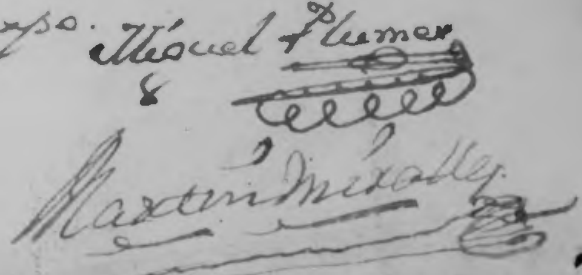 Miguel Plumer
8
Martin Miralles